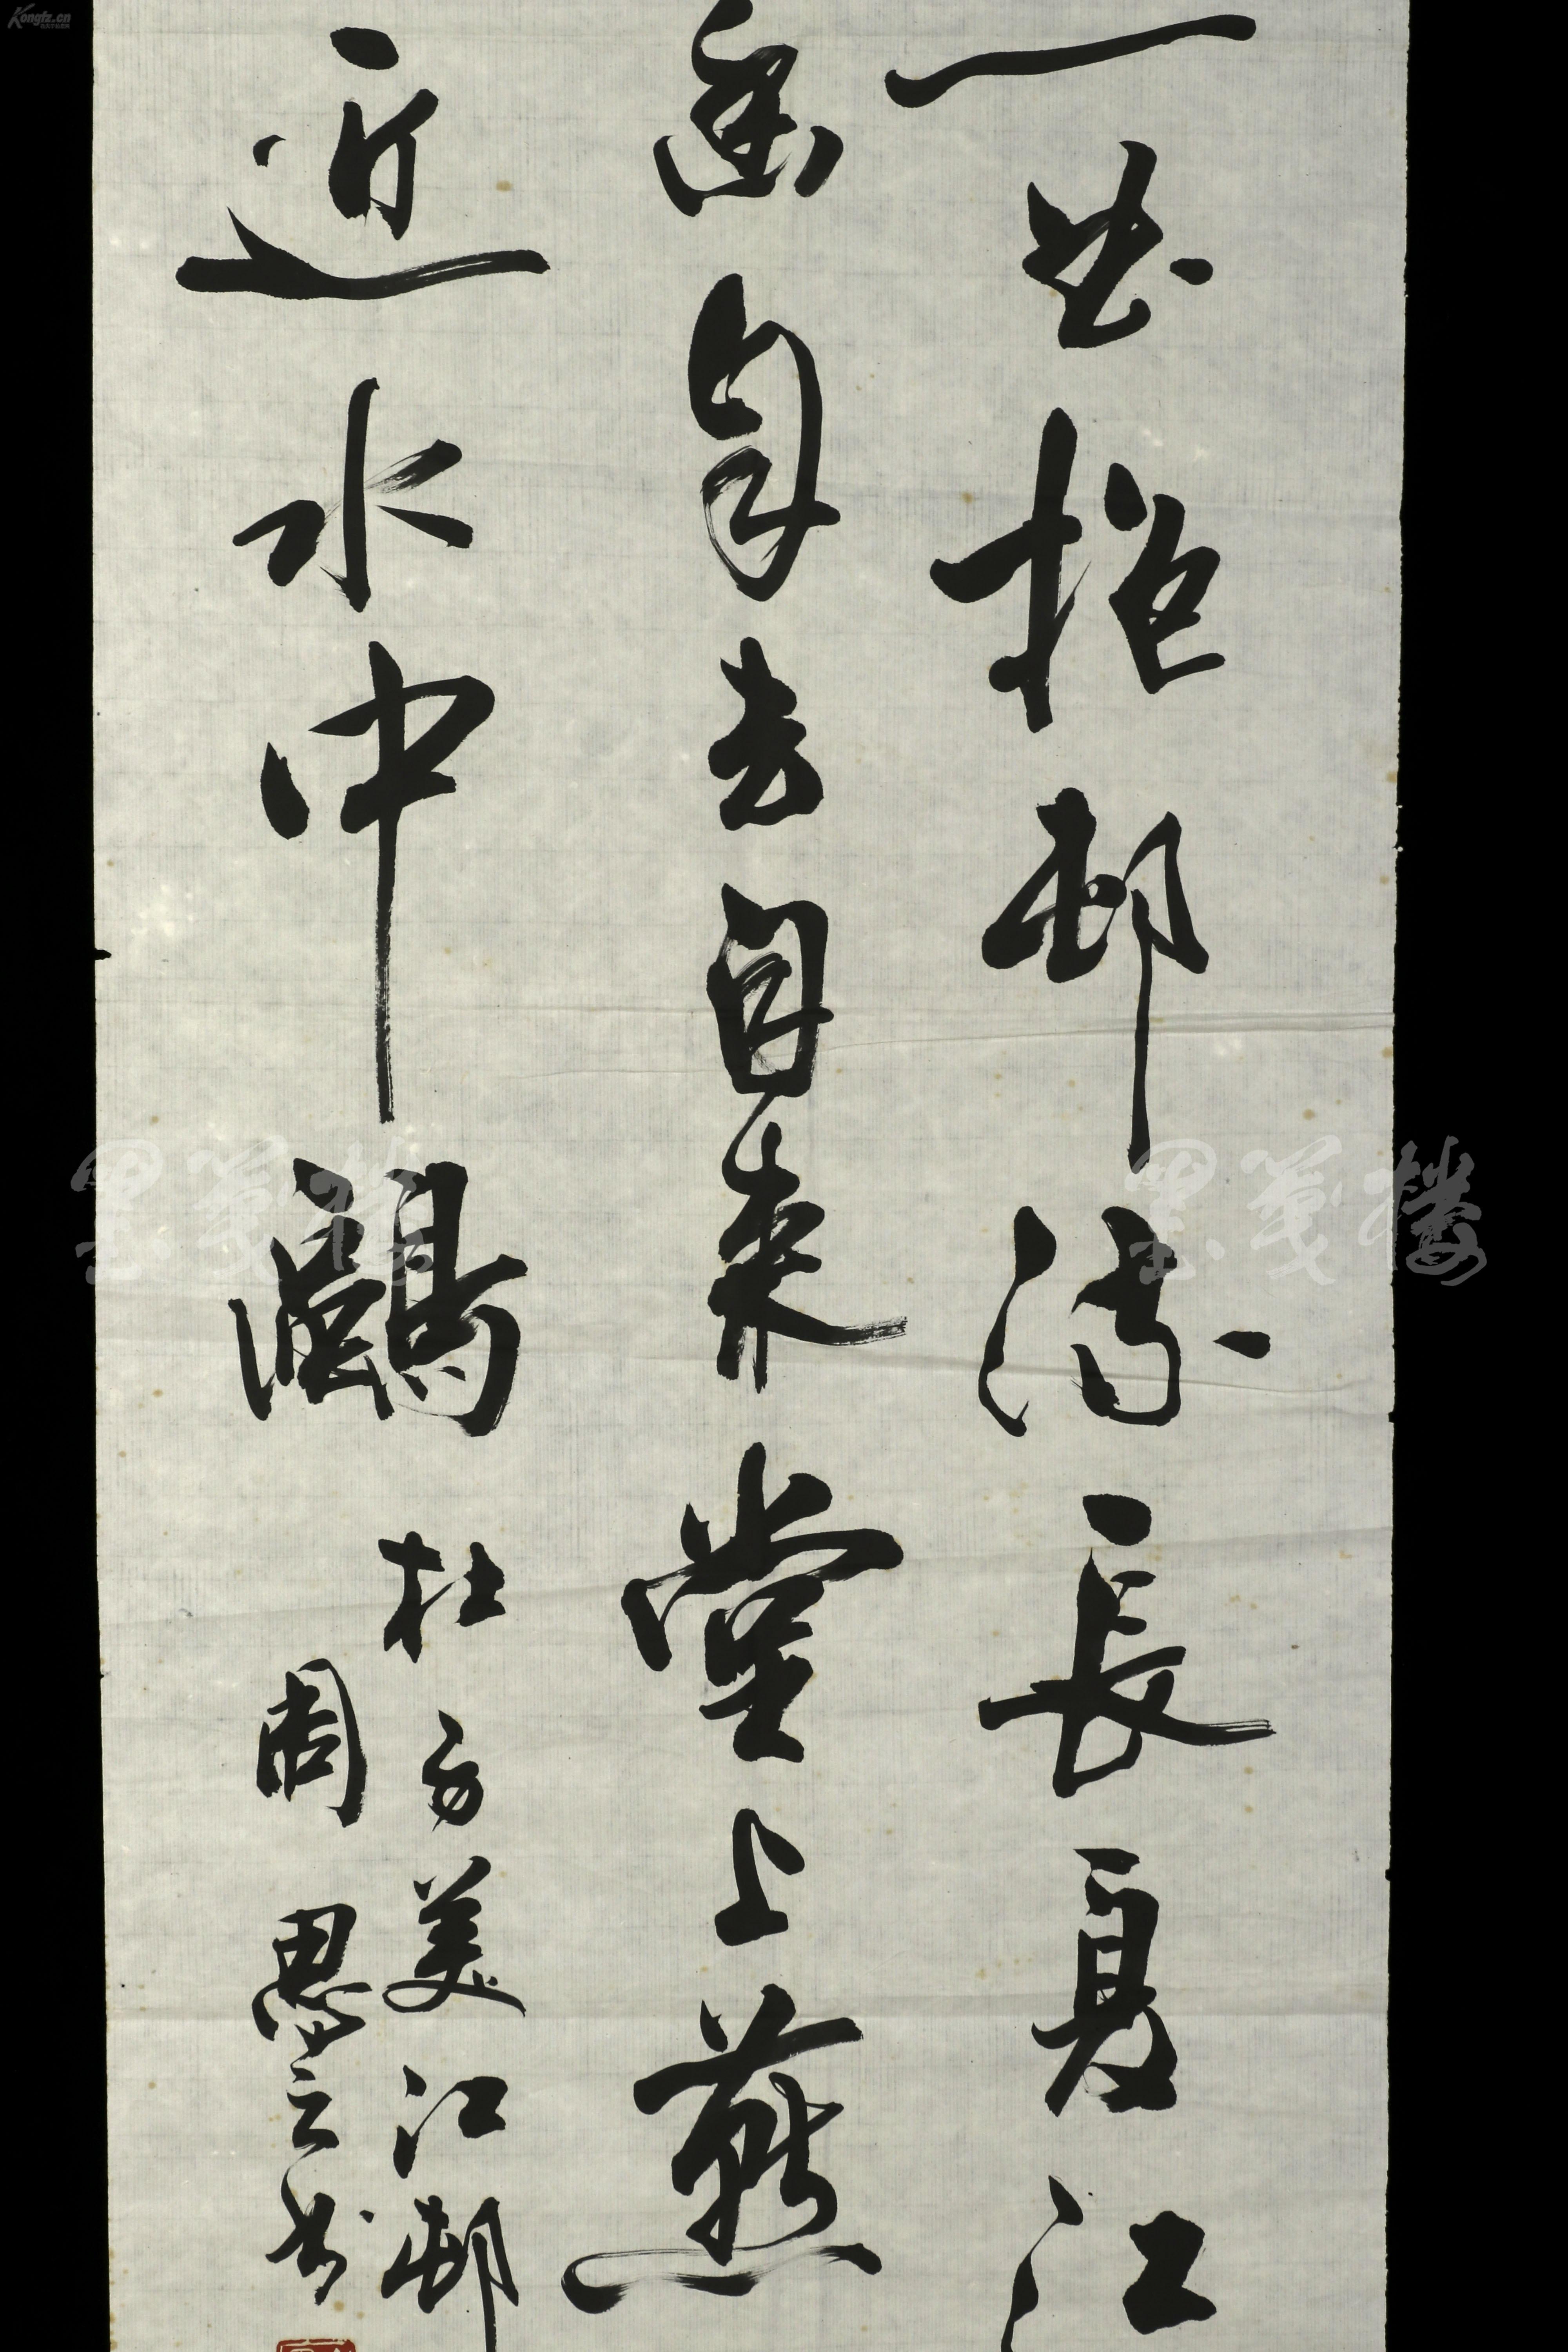 Kongfz.cn
一曲抱邨流長夏江
幽自去自来堂上燕
近水中鷗
杜子美江邨
周書
墨笺楼
墨笺楼